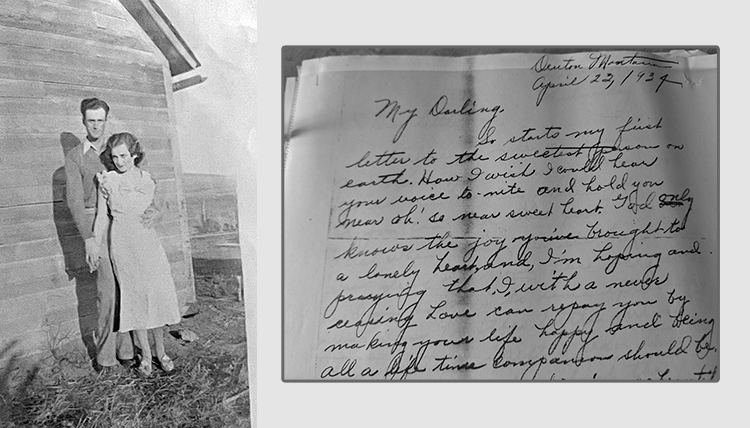 Denton Montana
April 23, 1939
My Darling
So starts my first
letter to the sweetest person on
earth. How I wish I could hear
your voice to-nite and hold you
near oh! so near sweet heart. God only
knows the joy you've brought to
a lonely heart and, I'm hoping and
praying that, I, with a never
ceasing Love can repay you by
making your life happy and being
all a life time companion should be.